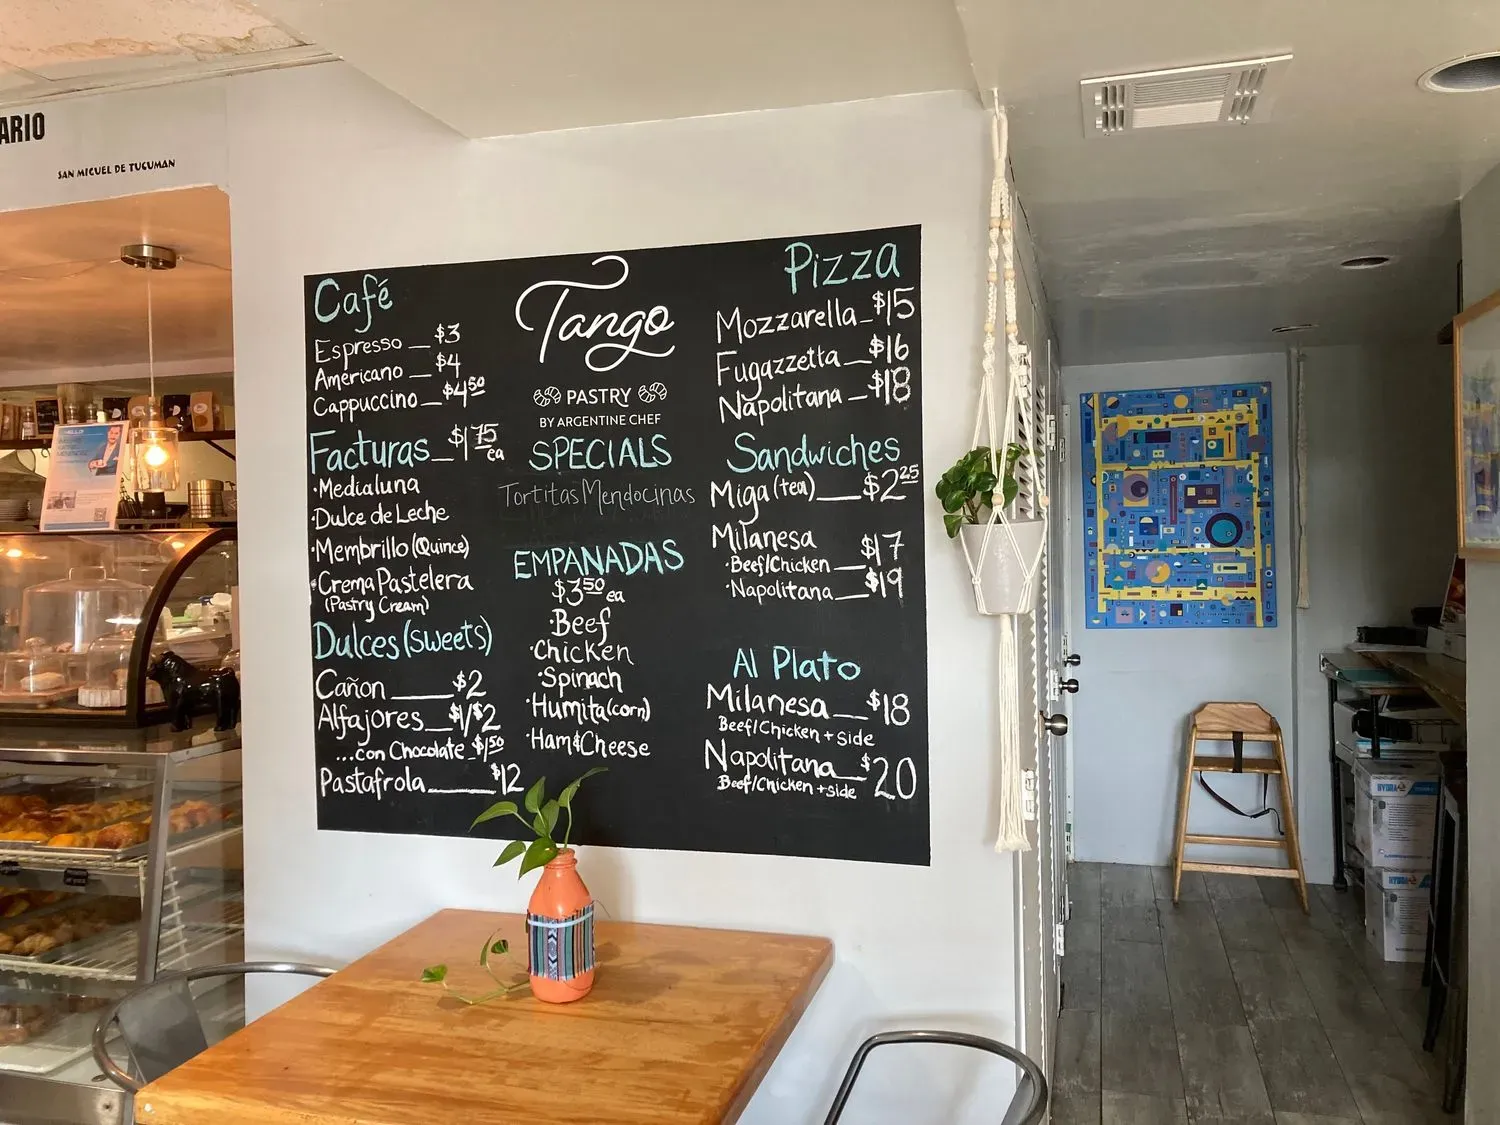 ARIO
SAN MIGUEL DE TUCUMAN
Café
Espresso __ $3
Americano __ $4
Cappuccino __ $4.50
Facturas __ $1.75 ea
·Medialuna
·Dulce de Leche
·Membrillo (Quince)
·Crema Pastelera
(Pastry Cream)
Dulces (sweets)
Cañon ____ $2
Alfajores __ $1/$2
...con Chocolate _ $1.50
Pastafrola ____ $12
Tango
PASTRY
BY ARGENTINE CHEF
SPECIALS
Tortitas Mendocinas
EMPANADAS
$3.50 ea
·Beef
·Chicken
·Spinach
·Humita (corn)
·Ham & Cheese
Pizza
Mozzarella _ $15
Fugazzetta __ $16
Napolitana _ $18
Sandwiches
Miga (tea) ___ $2.25
Milanesa
·Beef/Chicken __ $17
·Napolitana __ $19
Al Plato
Milanesa __ $18
Beef/Chicken + side
Napolitana __ $20
Beef/Chicken + side
HYDRA